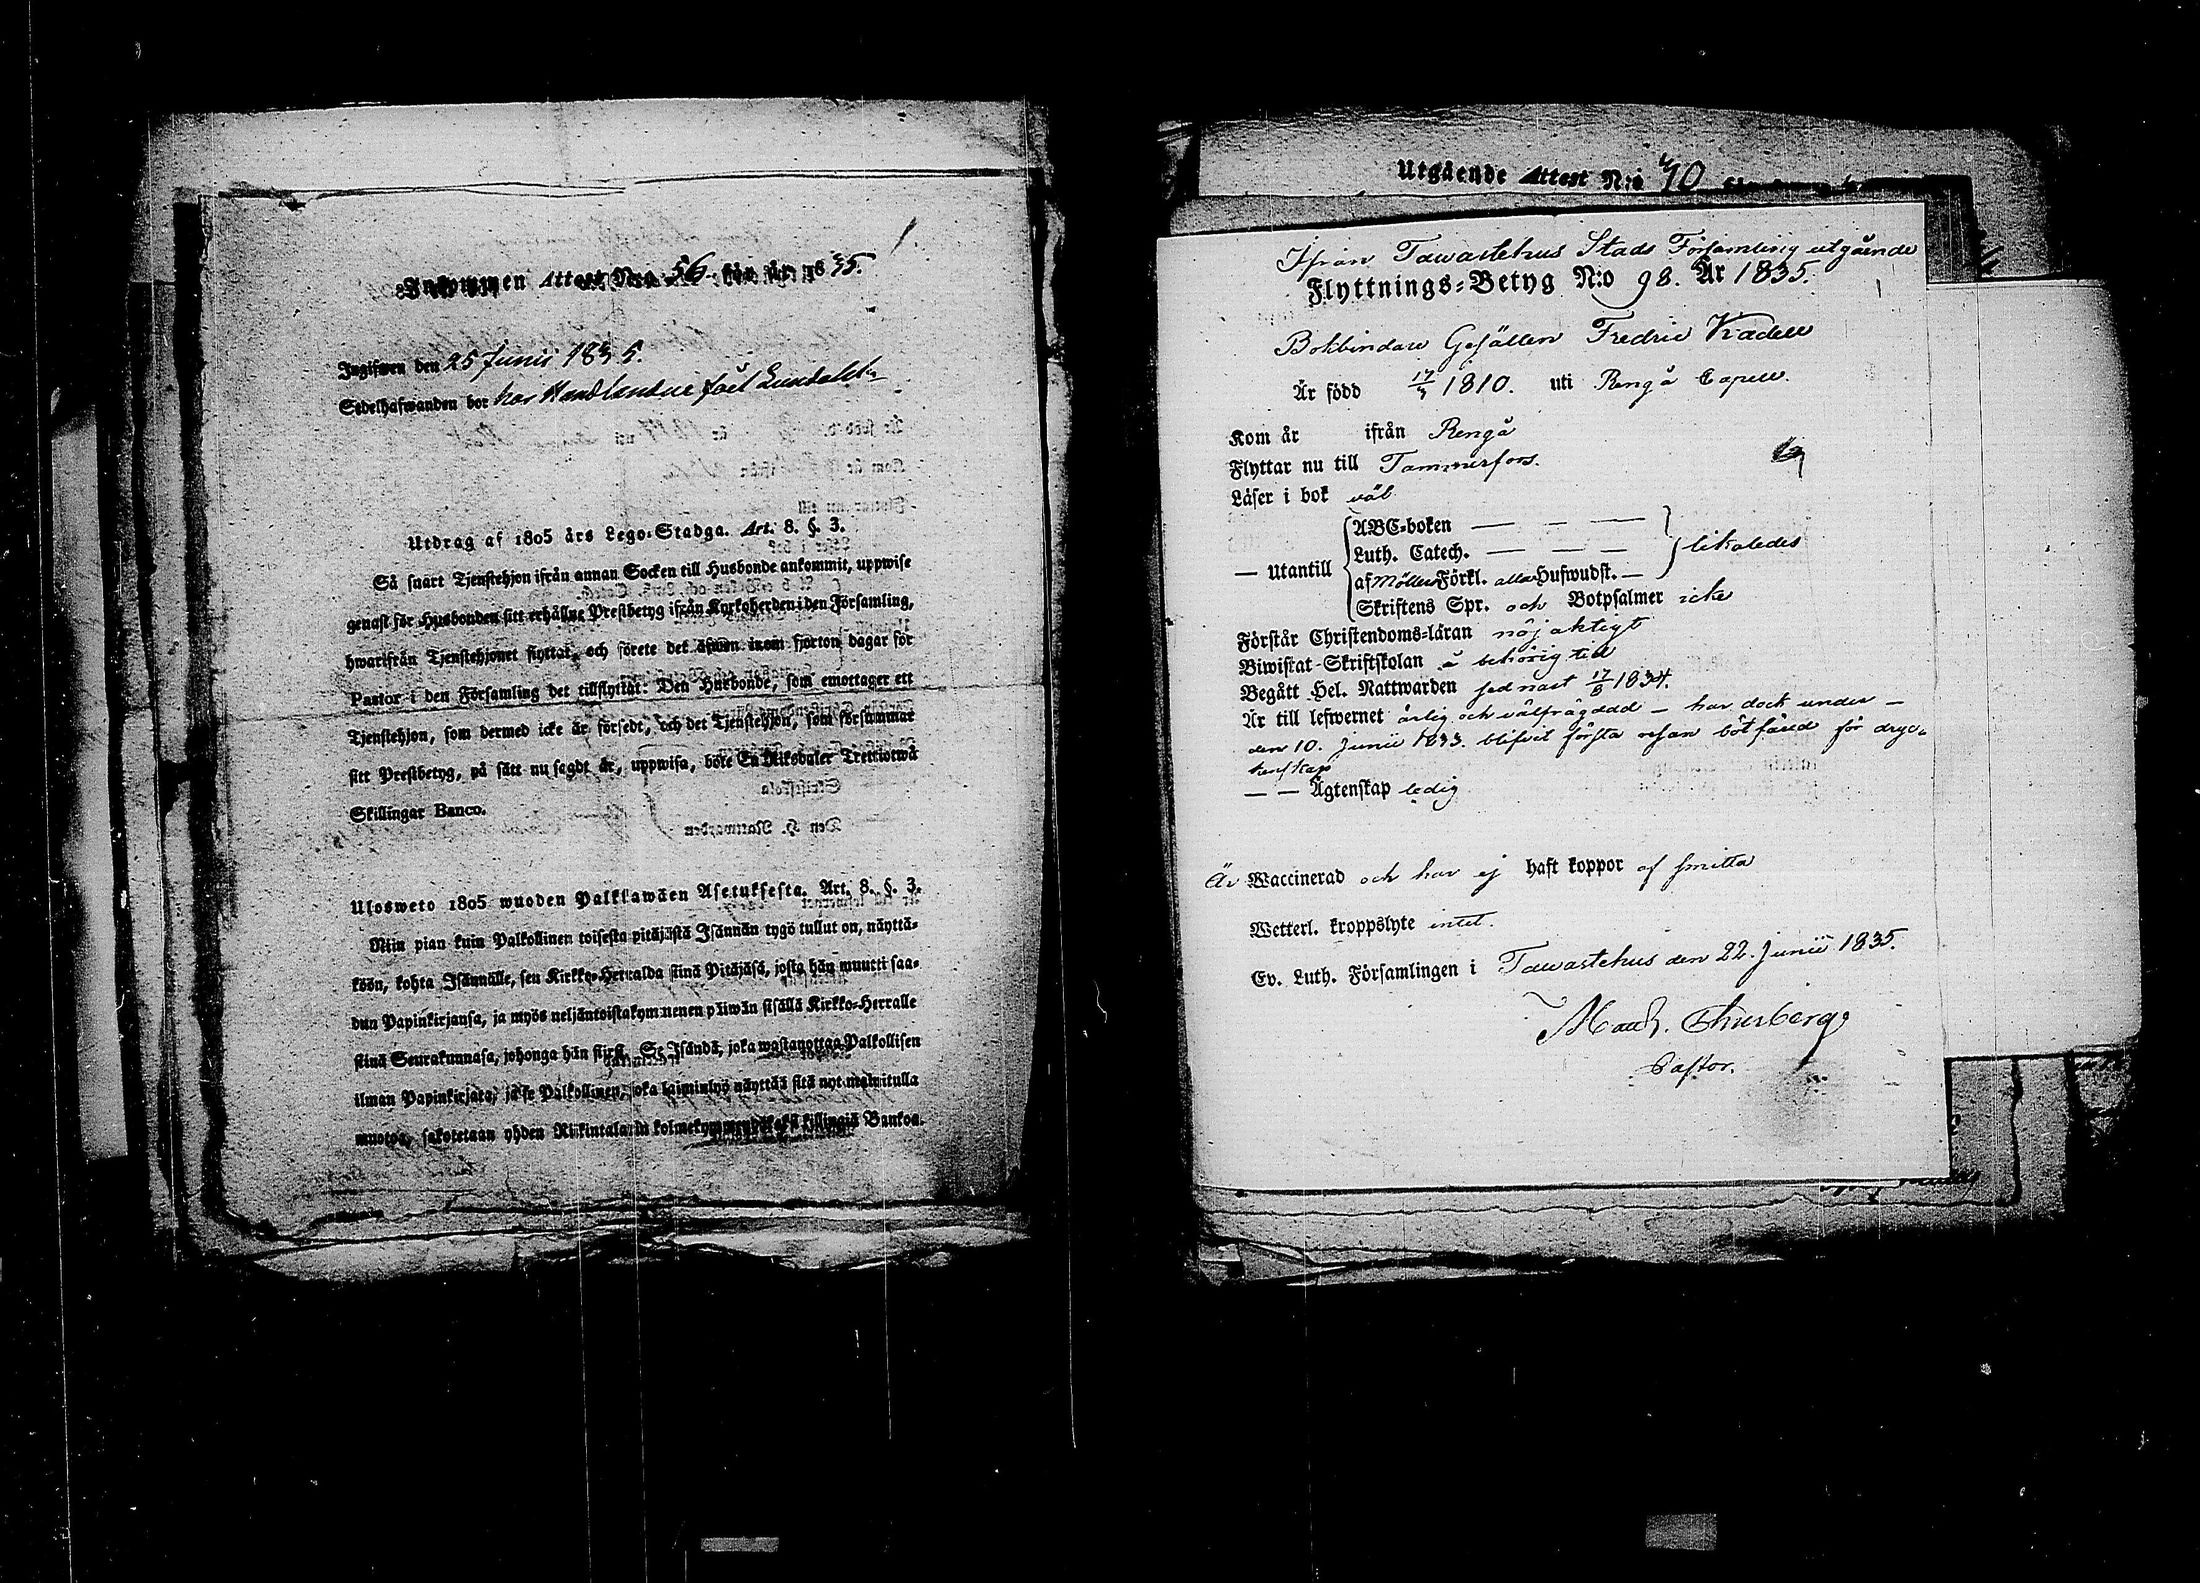 1.
Inkommen Attest N:o 56 för år 1835.
Ingifwen den 25 Junii 1835.
Sedelhafwanden bor hos Handlanden
Utdrag af 1805 års Lego-Stadga. Art. 8. §. 3.
Så snart Tjenstehjon ifrån annan Socken till Husbonde ankommit, uppwise
genast för Husbonden sitt erhållne Prestbetyg ifrån Kyrkoherden i den Församling,
hwarifrån Tjenstehjonet flyttat, och förete det äfwen inom fjorton dagar för
Pastor i den Församling det tillflyttat: Den Husbonde, som emottager ett
Tjenstehjon, som dermed icke är försedt, och det Tjenstehjon, som försummar
sitt Prestbetyg, på sätt nu sagdt är, uppwisa, böte En Riksdaler Trettiotwå
Skillingar Banco.
Ulosweto 1805 wuoden Palkkawäen Asetuksesta. Art. 8. §. 3.
Niin pian kuin Palkollinen toisesta pitäjästä Isännän tygö tullut on, näyttä-
köön, kohta Isännälle, sen Kirkko-Herralda siinä Pitäjäsä, josta hän muutti saa-
dun Papinkirjansa, ja myös neljäntoistakymmenen päiwän sisällä Kirkko-Herralle
siinä Seurakunnasa, johonga hän siirsi. Se Isändä, joka wastanottaa Palkollisen
ilman Papinkirjata, ja se Palkollinen, joka laiminlyö näyttää sitä nyt mainitulla
muotoa, sakotetaan yhden Riikintalarin kolmekymmendäkaksi killingiä Bankoa.
Utgående Attest N:o 40
Ifrån Tawastehus Stads Församling utgående
Flyttnings-Betyg N:o 98. År 1835.
Bokbindare Gesällen Fredric Kadell
Är född 17/3 1810. uti Rengå Capell.
Kom år ifrån Rengå
Flyttar nu till Tammerfors.
Läser i bok väl
— Utantill
ABC-boken — — —
Luth. Catech. — — —
af Möllers Förkl. alla Hufwudst. — likaledes
Skriftens Spr. och Botpsalmer icke
Förstår Christendoms-läran nöjaktigt
Biwistat Skriftskolan å behörig tid
Begått Hel. Nattwarden sednast 17/8 1834.
Är till lefwernet ärlig och välfrägdad — har dock under —
den 10. Junii 1833. blifvit första resan bötfäld för dryc-
kenskap
— — Ägtenskap ledig
Är Waccinerad och har ej haft koppor af smitta
Wetterl. kroppslyte intet.
Ev. Luth. Församlingen i Tawastehus den 22. Junii 1835.
Thurberg
Pastor.